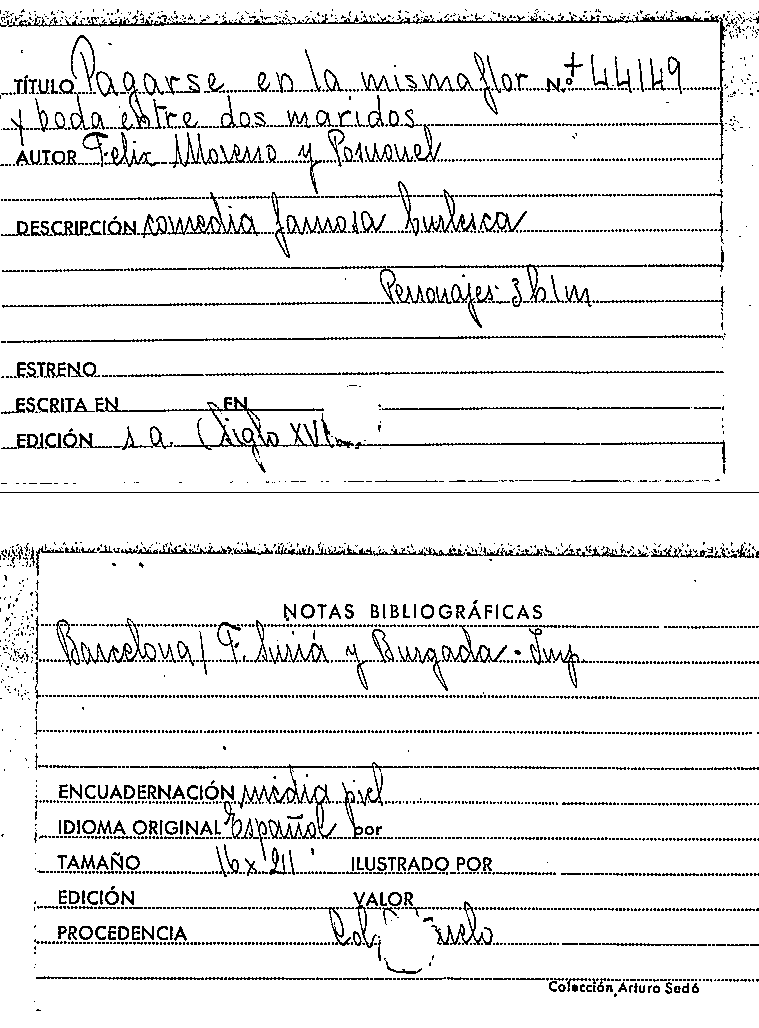 TÍTULO Pagarse en la misma flor N.º + 44149
y boda entre dos maridos
AUTOR Felix Moreno y Posuonel
DESCRIPCIÓN comedia famosa burlesca
Personajes: 3 h 1 m
ESTRENO
ESCRITA EN EN
EDICIÓN s.a. (Siglo
NOTAS BIBLIOGRÁFICAS
Barcelona / F. Suriá y Burgada - Imp
ENCUADERNACIÓN media piel
IDIOMA ORIGINAL Español por
TAMAÑO 16 x 21 ILUSTRADO POR
EDICIÓN VALOR
PROCEDENCIA
Colección Arturo Sedó